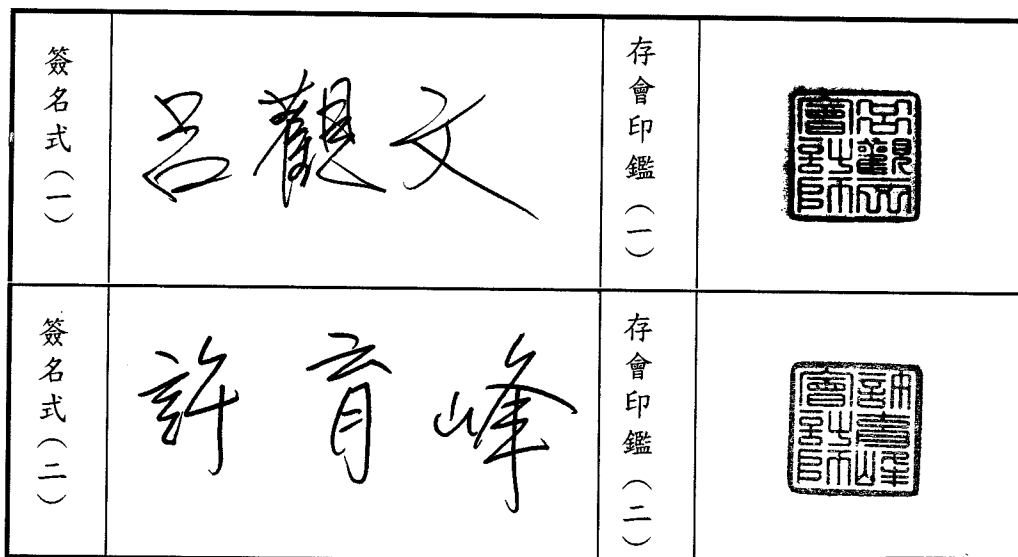 簽名式（一）
呂觀文
存會印鑑（一）
呂觀文會計師
簽名式（二）
許育峰
存會印鑑（二）
許育峰會計師